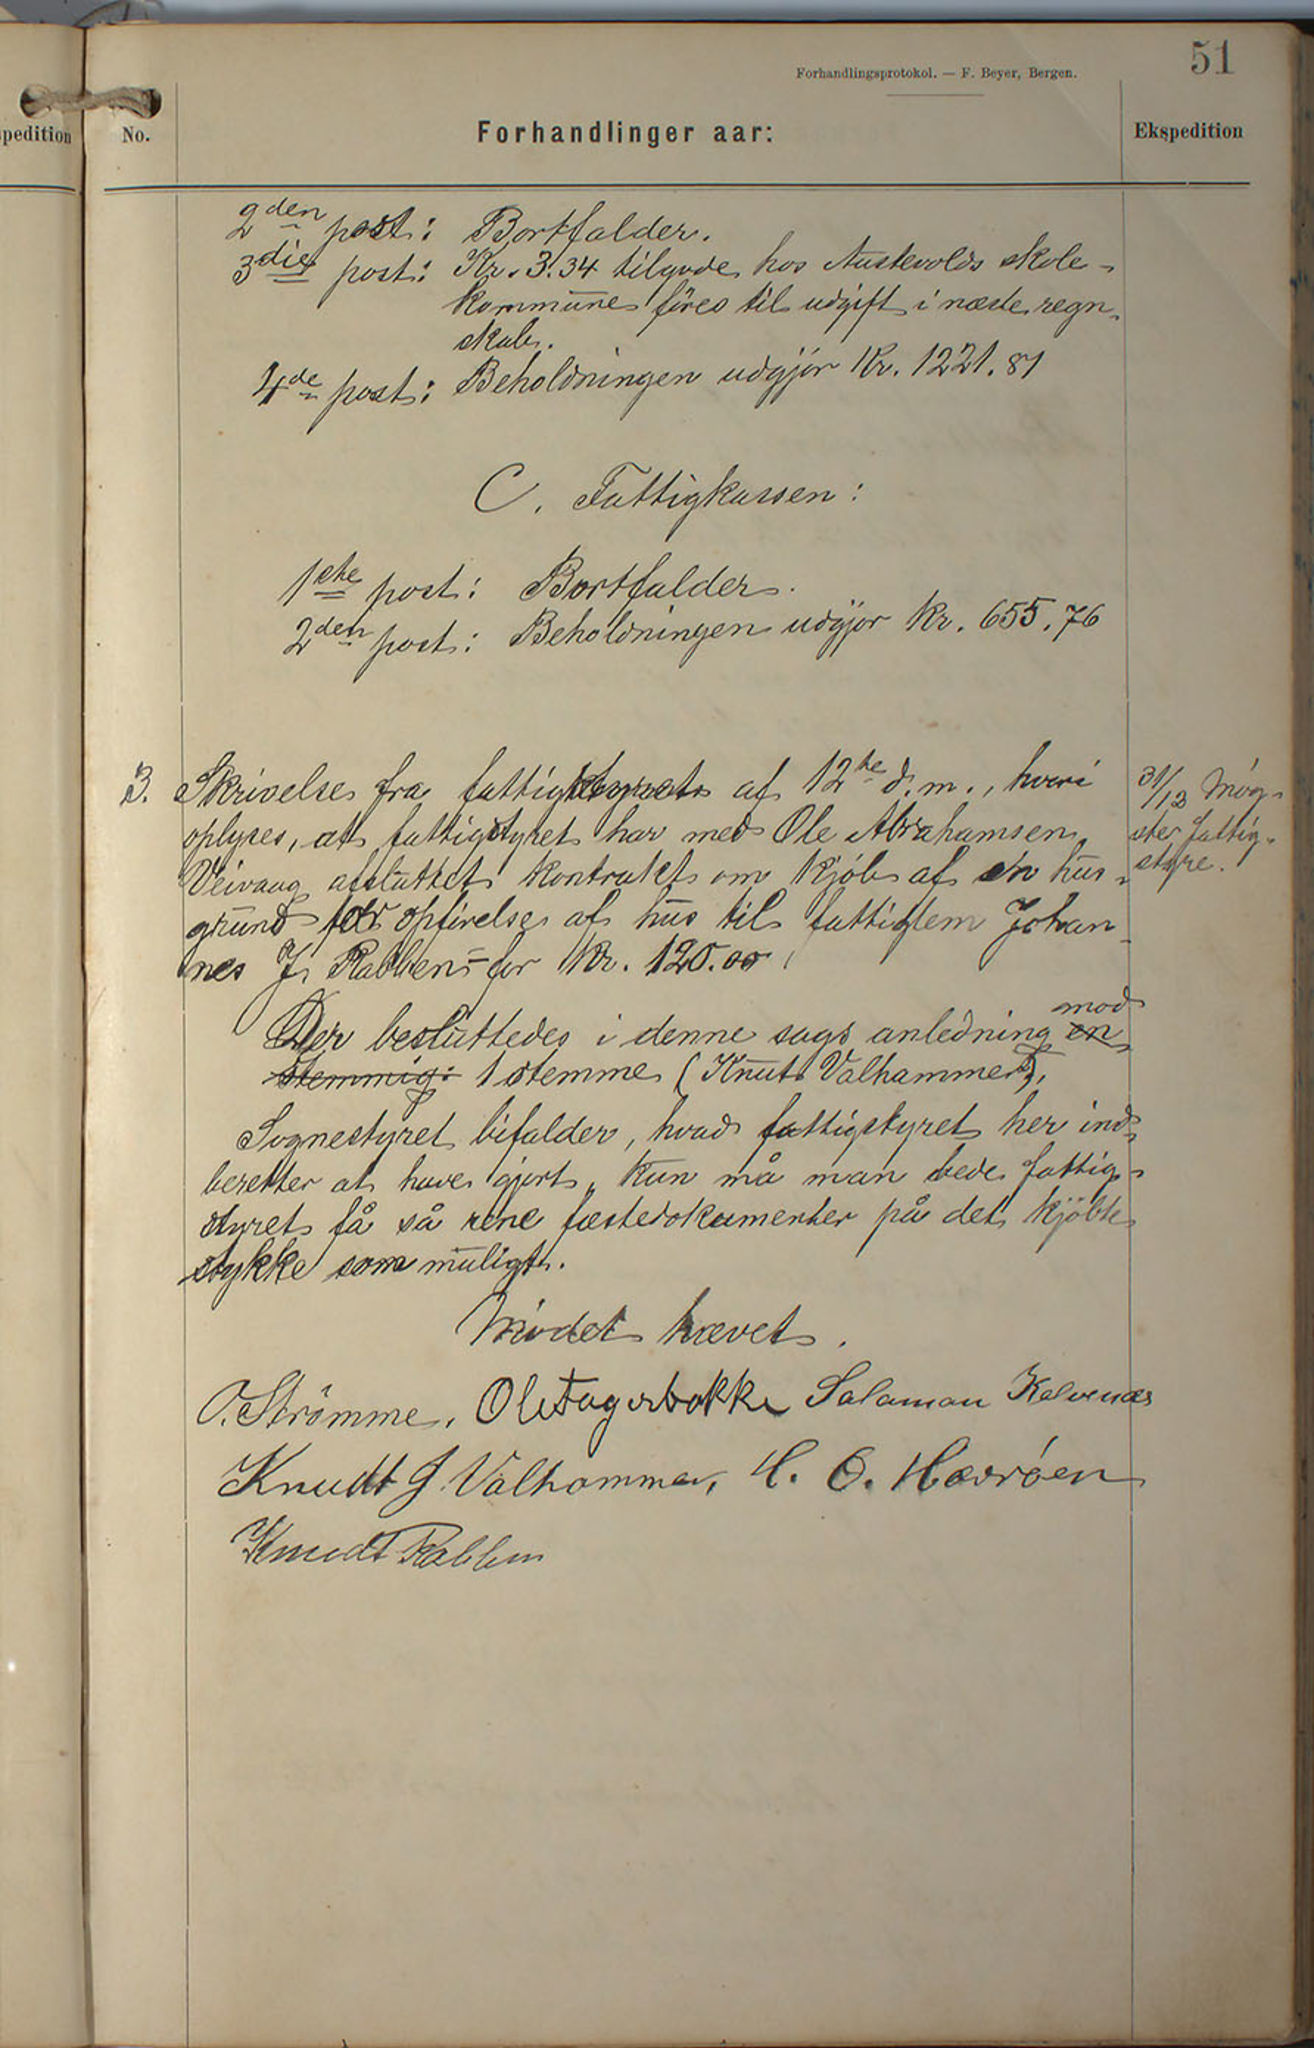 51
Forhandlingsprotokol. — F. Beyer, Bergen.
spedition
No.
Forhandlinger aar:
Ekspedition
2den post: Bortfalder.
3die post: Kr. 3.34 tilgode hos Austevolds skole-
kommune föres til udgift i næste regn-
skab.
4de post: Beholdningen udgjör Kr. 1221.81
C. Fattigkassen:
1ste post: Bortfalder.
2den post: Beholdningen udgjör Kr. 655.76
3. Skrivelse fra fattigstyret af 12te d.m., hvori
oplyses, at fattigstyret har med Ole Abrahamsen
Veivaag afsluttet kontrakt om kjöb af en hus-
grund for opförelse af hus til fattiglem Johan-
nes J. Rabben for Kr. 120.00.
31/12 Mög-
ster fattig-
styre.
Der besluttedes i denne sags anledning en mod
stemmig: 1 stemme (Knut Valhammer),
Sognestyret bifalder, hvad fattigstyret her ind-
beretter at have gjort, kun må man bede fattig-
styret få så rene fæstedokumenter på det kjöbte
stykke som muligt.
Mödet hævet.
O. Strömme, Ole Fagerbakke Salamon Kalvenæs
Knudt J. Valhammer, H. O. Hævröen
Knudt Rabben